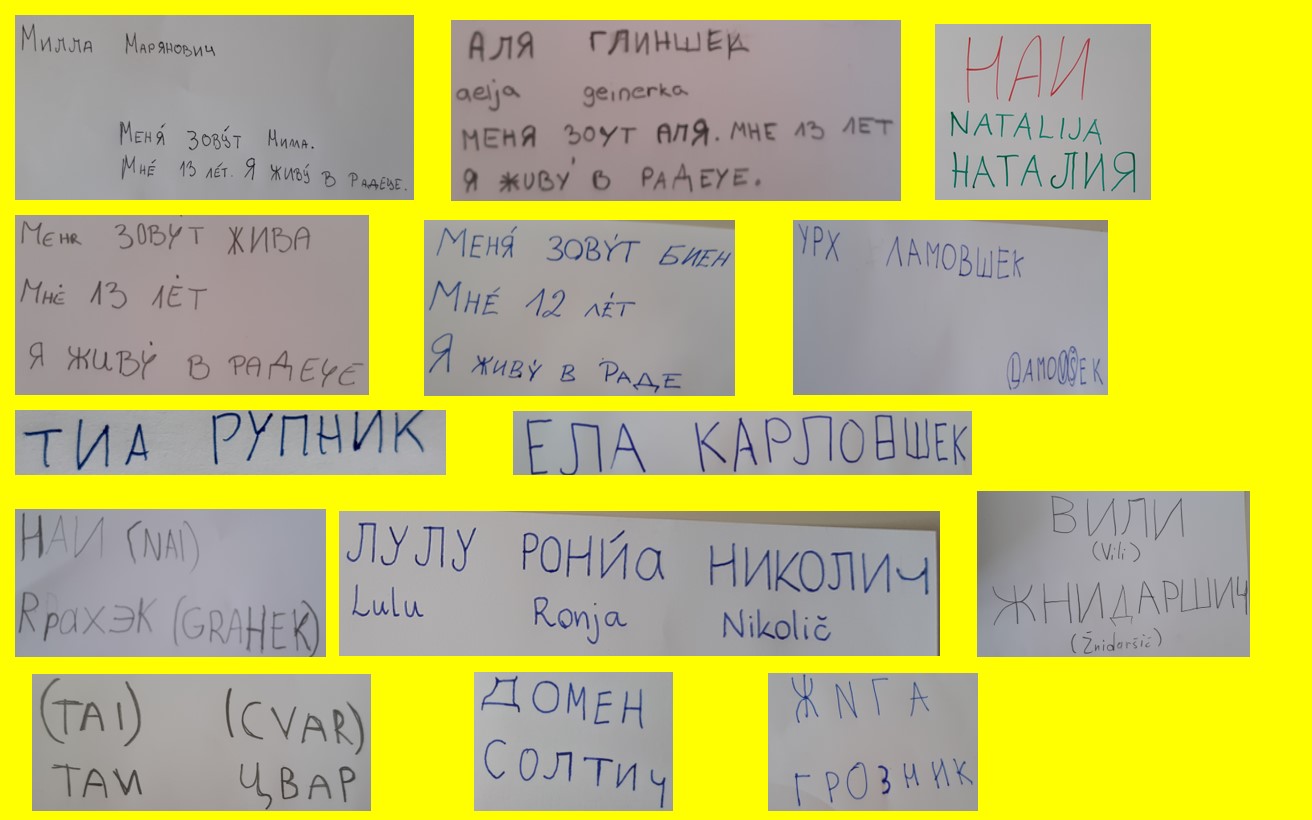 Милла Марянович
Меня́ зову́т Мима.
Мне́ 13 ле́т. Я живу́ в Радеъе.
АЛЯ ГЛИНШЕК
aelja geinerka
МЕНЯ ЗОУТ АЛЯ. МНЕ 13 ЛЕТ
Я ЖИВУ́ В РАДЕЧЕ.
НАИ
NATALIJA
НАТАЛИЯ
МЕНЯ ЗОВУТ ЖИВА
МНЕ́ 13 ЛЕ́Т
Я ЖИВУ́ В РАДЕЧЕ
МЕНЯ́ ЗОВУ́Т БИЕН
МНЕ́ 12 ЛЕ́Т
Я ЖИВУ́ В РАДЕ
УРХ ЛАМОВШЕК
LAMOVŠEK
ТИА РУПНИК
ЕЛА КАРЛОВШЕК
НАИ (NAI)
Rрахэк (GRAHEK)
ЛУЛУ РОНЙа НИКОЛИЧ
Lulu Ronja Nikolič
ВИЛИ
(Vili)
ЖНИДАРШИЧ
(Žnidaršič)
(TAI) (CVAR)
ТАИ ЦВАР
ДОМЕН
СОЛТИЧ
ЖNГА
ГРОЗНИК